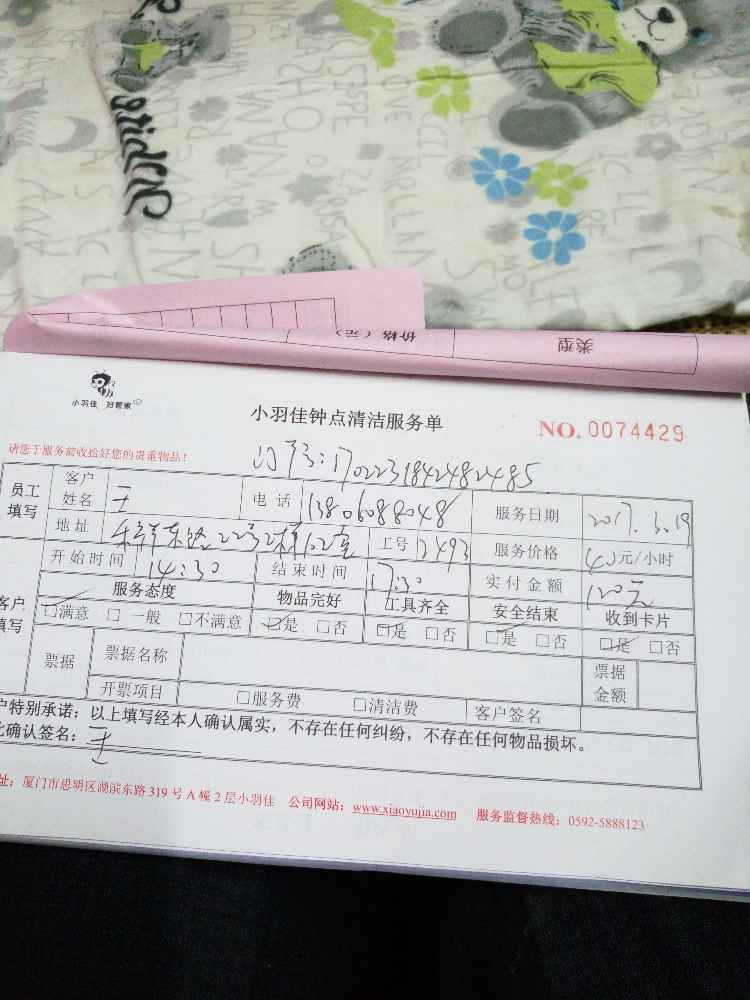 价格（元） 类型
小羽佳 好管家
小羽佳钟点清洁服务单 NO. 0074429
请您于服务前收拾好您的贵重物品！
1702231842482485
员工填写 客户姓名 王 电话 13806088048 服务日期 2017.3.19
地址 22号2梯102室 工号 2493 服务价格 40元/小时
客户填写 开始时间 14:30 结束时间 17:30 实付金额 120元
服务态度 物品完好 工具齐全 安全结束 收到卡片
☑满意 □一般 □不满意 ☑是 □否 ☑是 □否 ☑是 □否 ☑是 □否
票据 票据名称 票据金额
开票项目 □服务费 □清洁费 客户签名
户特别承诺：以上填写经本人确认属实，不存在任何纠纷，不存在任何物品损坏。
此确认签名：王
址：厦门市思明区湖滨东路319号A幢2层小羽佳 公司网站：www.xiaoyujia.com 服务监督热线：0592-5888123